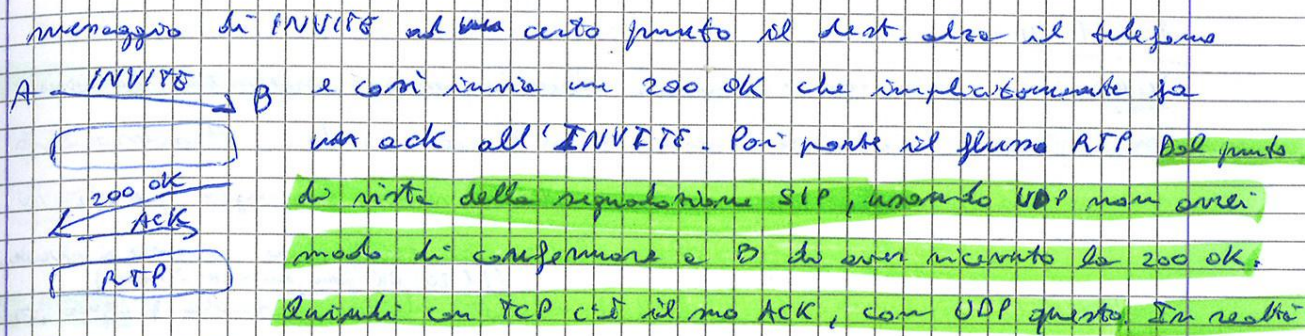 messaggio di INVITE ad un certo punto il dest. alza il telefono
A INVITE B e così invia un 200 OK che implicitamente fa
un ack all'INVITE. Poi parte il flusso RTP. Dal punto
200 OK di vista della segnalazione SIP, usando UDP non avrei
ACK modo di confermare a B di aver ricevuto la 200 OK.
RTP Quindi con TCP c'è il suo ACK, con UDP questo. In realtà